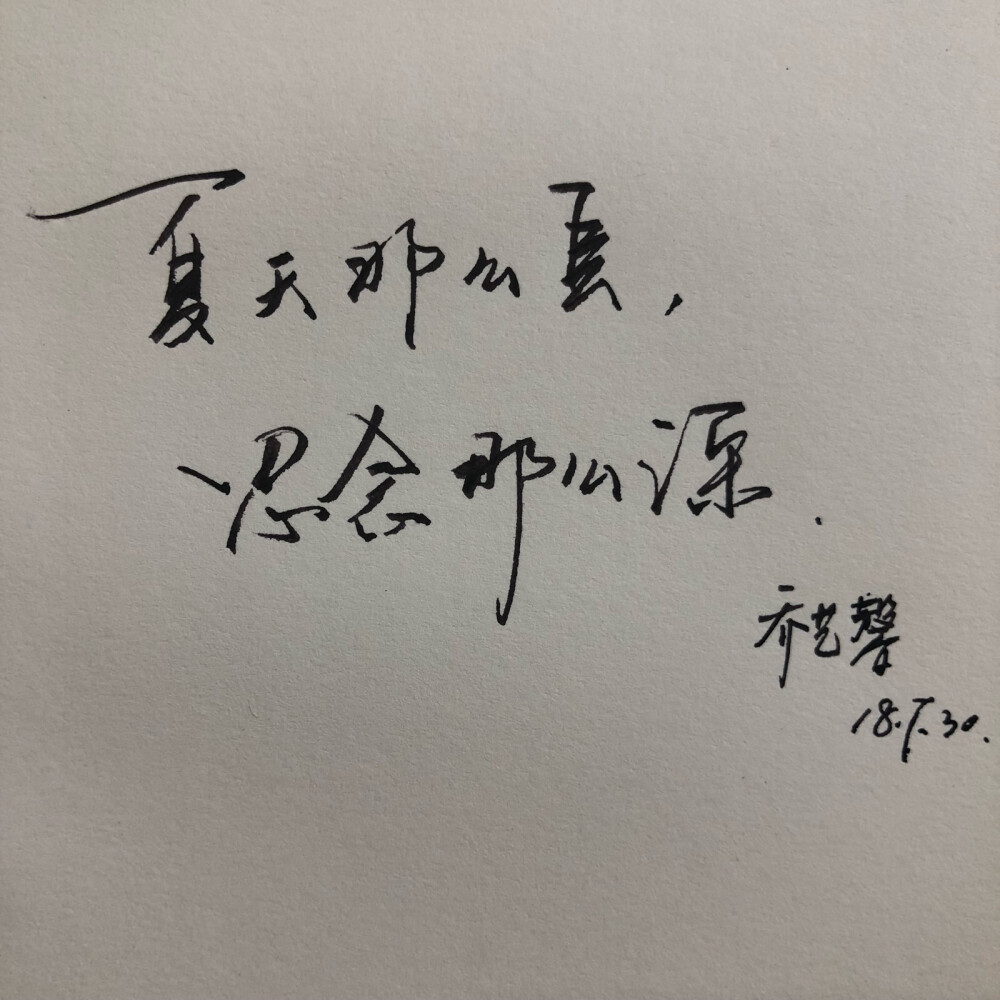 夏天那么，
思念那么源.
乔艺馨
18.7.30.